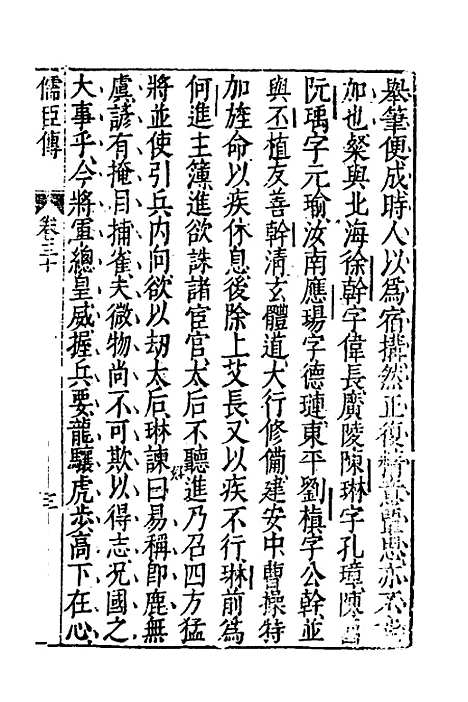 舉筆便成時人以爲宿搆然正復精意覃思亦不能
加也粲與北海徐幹字偉長廣陵陳琳字孔璋陳留
阮瑀字元瑜汝南應瑒字德璉東平劉楨字公幹並
與丕植友善幹清玄體道大行修備建安中曹操特
加旌命以疾休息後除上艾長又以疾不行琳前爲
何進主簿進欲誅諸宦官太后不聽進乃召四方猛
將並使引兵内向欲以刼太后琳諫曰易稱卽鹿無
虞諺有掩目捕雀夫微物尚不可欺以得志况國之
大事乎今將軍總皇威握兵要龍驤虎步高下在心
儒臣傳 卷三十 三